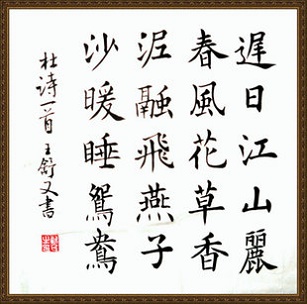 遲日江山麗
春風花草香
泥融飛燕子
沙暖睡鴛鴦
杜诗一首王舒又書